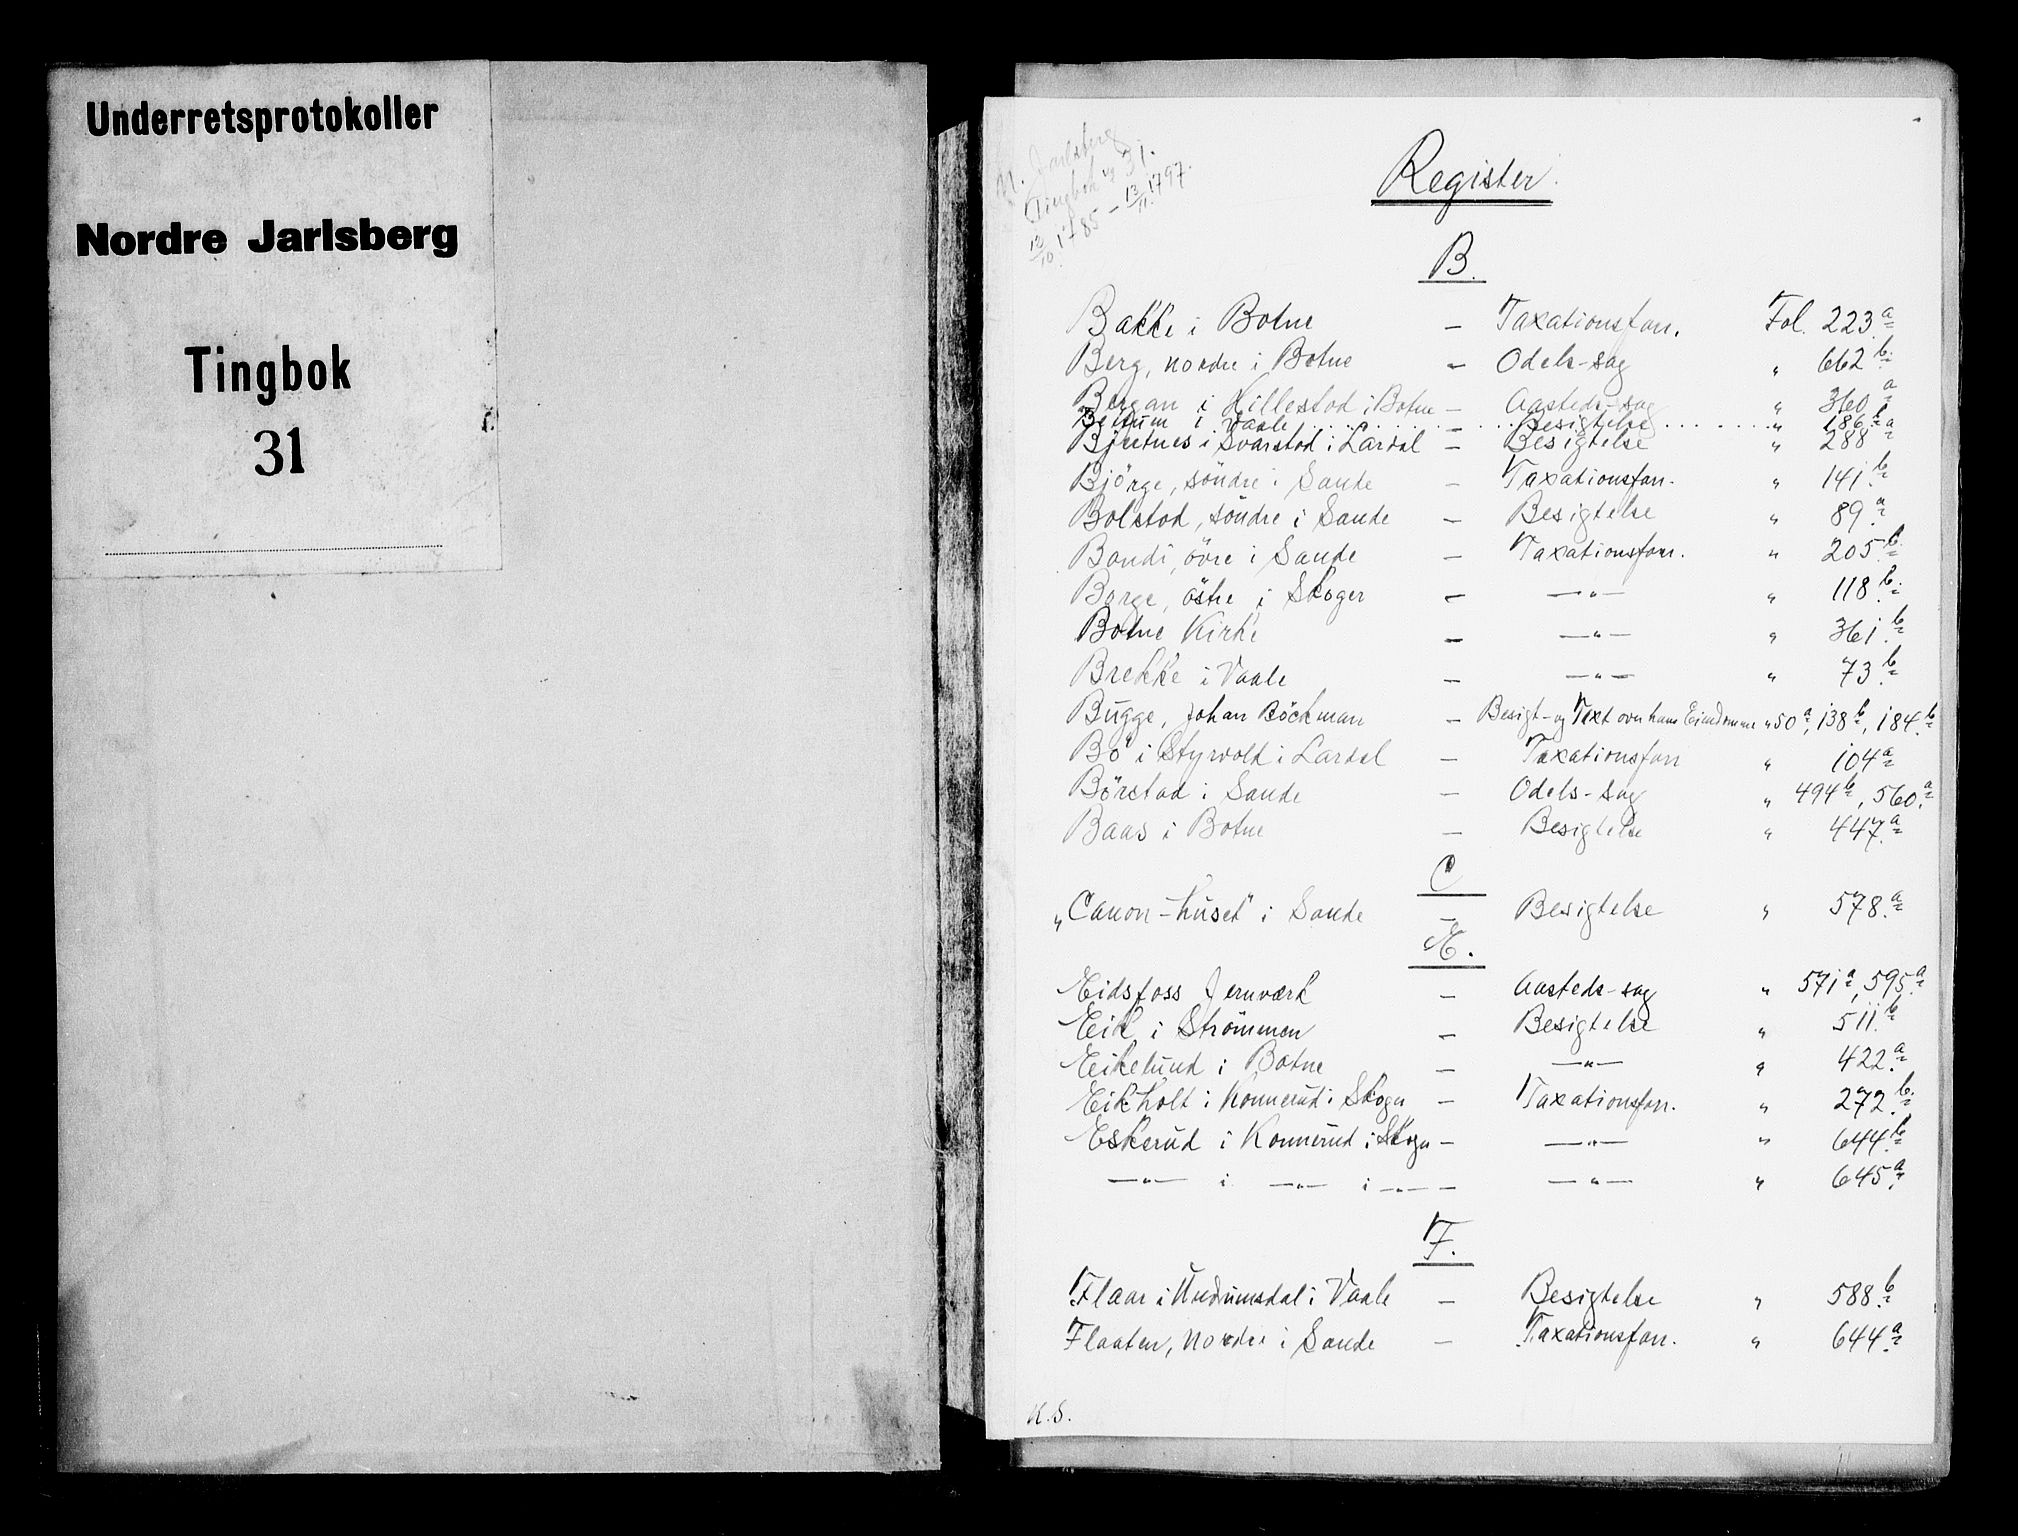 Underretsprotokoller
Nordre Jarlsberg
Tingbok
31
N. Jarlsberg
Tingbok 31.
12/10 1785 – 13/11 1797.
Register.
B.
Bakke i Botne – Taxationsforr. Fol. 223 a
Berg, nordre i Botne – Odels-sag " 662 b.
Bergan i Hillestad i Botne – Aasteds-sag " 360 a
Bettum i Vaale – Besigtelse " 186 b
Bjertnes i Svarstad i Lardal – Besigtelse " 288 a
Björge, söndre i Sande – Taxationsforr. " 141 b.
Bolstad, söndre i Sande – Besigtelse " 89 a.
Bondi, övre i Sande – Taxationsforr. " 205 b.
Borge, östre i Skoger – —"— " 118 b.
Botne Kirke – —"— " 361 b.
Brekke i Vaale – —"— " 73 b.
Bugge, Johan Böckman – Besigt- og Taxt over hans Eiendomme " 50 a, 138 b, 184 b.
Bö i Styrvold i Lardal – Taxationsforr " 104 a
Börstad i Sande – Odels-sag " 494 b, 560 a.
Baas i Botne – Besigtelse " 447 a.
C
„Canon-huset" i Sande – Besigtelse " 578 a.
E.
Eidsfoss Jernværk – Aasteds-sag " 571 a, 595 a.
Eik i Strömmen – Besigtelse " 511 b.
Eikelund i Botne – —"— " 422 a.
Eikholt i Konnerud i Skoger – Taxationsforr. " 272 b.
Eskerud i Konnerud i Skoger – —"— " 644 b.
—"— i —"— i —"— – —"— " 645 a.
F.
Flaar i Undrumsdal i Vaale – Besigtelse " 588 b.
Flaaten, nordre i Sande – Taxationsforr. " 644 a.
K.S.